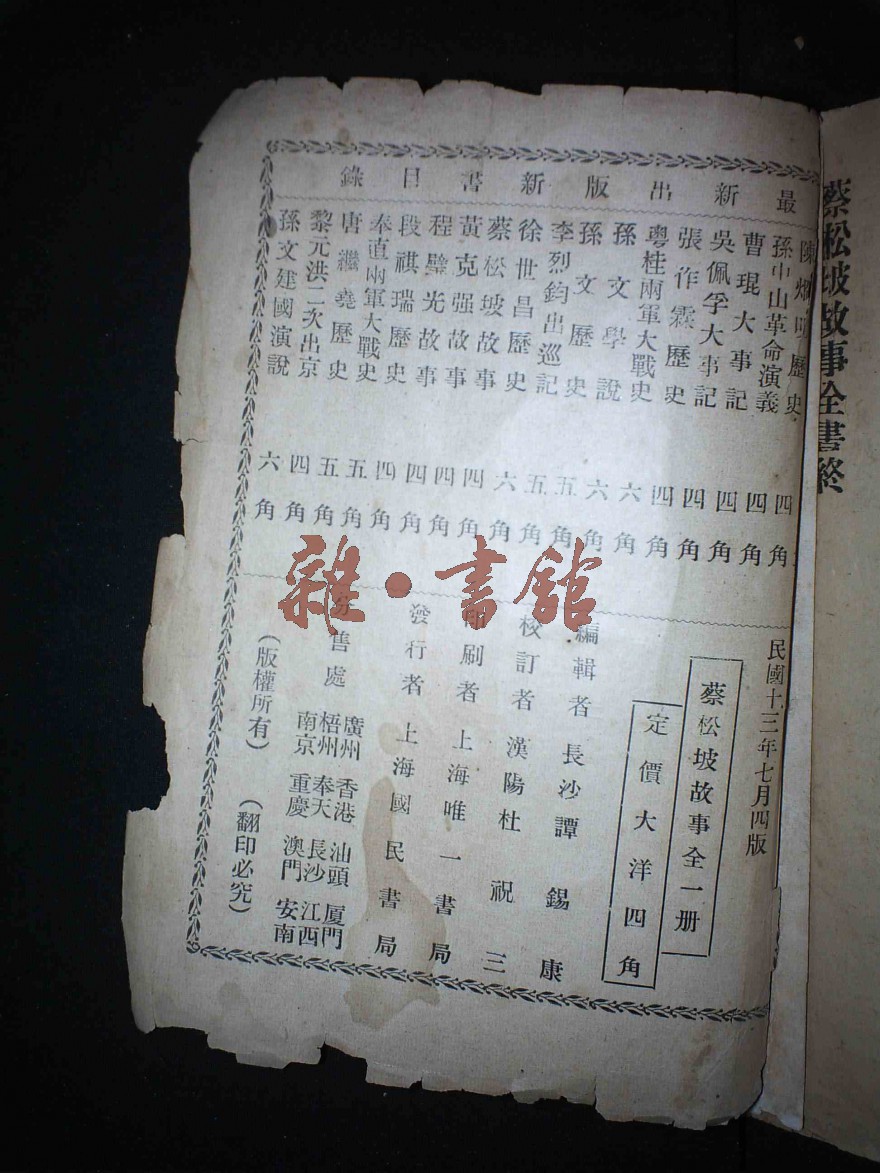 蔡松坡故事全書終
最新出版新書目錄
陳炯明歷史 四角
孫中山革命演義 四角
曹琨大事記 四角
吳佩孚大事記 四角
張作霖歷史 四角
粵桂兩軍大戰史 六角
孫文學說 六角
孫文歷史 五角
李烈鈞出巡記 五角
徐世昌歷史 六角
蔡松坡故事 四角
黃克强故事 四角
程璧光故事 四角
段祺瑞歷史 四角
奉直兩軍大戰史 五角
唐繼堯歷史 五角
黎元洪二次出京 四角
孫文建國演說 六角
民國十三年七月四版
蔡松坡故事全一册
定價大洋四角
編輯者 長沙譚錫康
校訂者 漢陽杜祝三
印刷者 上海唯一書局
發行者 上海國民書局
分售處
廣州 香港 汕頭 厦門
梧州 奉天 長沙 江西
南京 重慶 澳門 安南
(版權所有) (翻印必究)
雜·書館